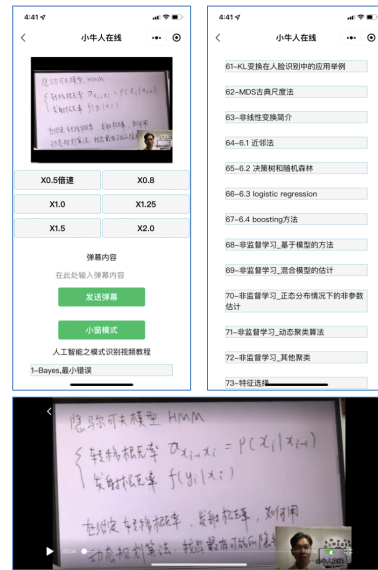 4:41
小牛人在线
隐马尔可夫模型 HMM
转移概率 a_{x_{i-1}x_i} = P(x_i|x_{i-1})
发射概率 f(y_i|x_i)
在给定转移概率、发射概率,则可用
动态规划算法,找出最有可能的隐
X0.5倍速 X0.8
X1.0 X1.25
X1.5 X2.0
弹幕内容
在此处输入弹幕内容
发送弹幕
小窗模式
人工智能之模式识别视频教程
1-Bayes,最小错误
4:41
小牛人在线
61-KL变换在人脸识别中的应用举例
62-MDS古典尺度法
63-非线性变换简介
64-6.1 近邻法
65-6.2 决策树和随机森林
66-6.3 logistic regression
67-6.4 boosting方法
68-非监督学习_基于模型的方法
69-非监督学习_混合模型的估计
70-非监督学习_正态分布情况下的非参数
估计
71-非监督学习_动态聚类算法
72-非监督学习_其他聚类
73-特征选择
隐马尔可夫模型 HMM
转移概率 a_{x_{i-1}x_i} = P(x_i|x_{i-1})
发射概率 f(y_i|x_i)
在给定转移概率、发射概率,则可用
动态规划算法,找出最有可能的隐